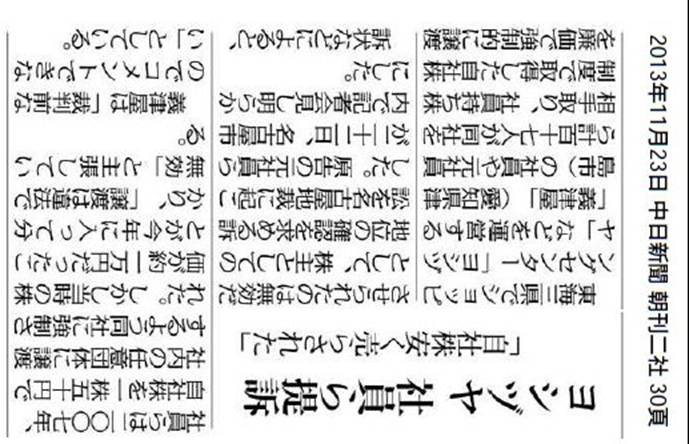 2013年11月23日 中日新聞 朝刊二社 30頁
ヨシヅヤ 社員ら提訴
「自社株安く売らされた」
東海三県でショッピ
ングセンター「ヨシヅ
ヤ」などを運営する
「義津屋」（愛知県津
島市）の社員や元社員
ら計百十七人が同社を
相手取り、社員持ち株
制度で取得した自社株
を廉価で強制的に譲渡
させられたのは無効だ
として、株主としての
地位の確認を求める訴
訟を名古屋地裁に起こ
した。原告の元社員ら
が二十一日、名古屋市
内で記者会見し明らか
にした。
訴状などによると、
社員らは二〇〇七年、
自社株を一株五十円で
社内の任意団体に譲渡
するよう同社に強制さ
れた。しかし当時の株
価が約一万円だったこ
とが今年に入って分
かり、「譲渡は違法で
無効」と主張してい
る。
義津屋は「裁判前な
のでコメントできな
い」としている。